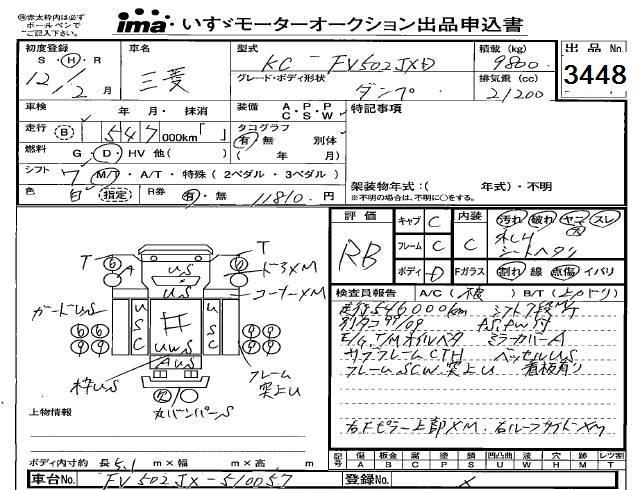 ㊟赤太枠内は必ず
ボールペンで
ご記入下さい。
ima・いすゞモーターオークション出品申込書
初度登録 車名 型式 積載 (kg) 出品No.
S・H・R 三菱 KC - FV502JXD 9800 3448
12/2月 グレード・ボディ形状 ダンプ 排気量 (cc) 21200
車検 年 月・抹消 装備 A・P・P C・S・W 特記事項
走行 B 547 000km「 」 タコグラフ
有 無 別体
燃料 G・D・HV 他( ) ( 年 月)
シフト 7 M/T・A/T・特殊(2ペダル・3ペダル) 架装物年式:( 年式)・不明
色 白 指定 R券 有・無 11810 円 ※不明の場合は、不明に〇をする。
評価 キャブ C 内装 汚れ 破れ ヤニ スレ
RB フレーム C C シートヘタリ
ボディ D Fガラス 割れ 線 点傷 イバリ
T T
A
US
US コーナーXM
ガードUS
USC USC
UWS
AUS
枠US フレーム
突上U
丸バンパーS
検査員報告 A/C( ) B/T(上カドリ)
走行546000km シフト7段MT
AS.PW付
E/G.T/Mオイルベタ ミラーカバーA
サブフレームCTH ベッセルUS
フレームSCW.突上U 看板有り
右Fピラー上部XM.右ルーフサイドXM
上物情報
ボディ内寸約 長5.1m×幅 m×高 m
記号 傷 板金 腐 塗 錆 凹凸曲 波 穴 跡 レツ割
A B C P S U W H M T
車台No. FV502JX-510057 登録No. X